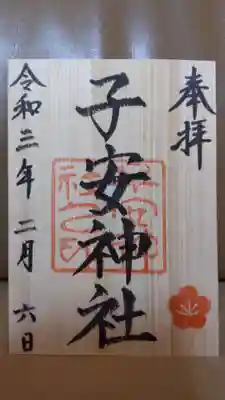 奉拝
子安神社
令和三年 二月 六日